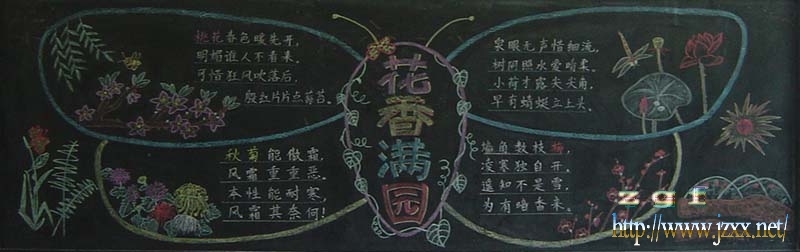 花香满园
桃花春色暖先开，
明媚谁人不看来。
可惜狂风吹落后，
殷红片片点莓苔。
泉眼无声惜细流，
树阴照水爱晴柔。
小荷才露尖尖角，
早有蜻蜓立上头。
秋菊能傲霜，
风霜重重恶。
本性能耐寒，
风霜其奈何！
墙角数枝梅，
凌寒独自开。
遥知不是雪，
为有暗香来。
zgf
http://www.jzxx.net/